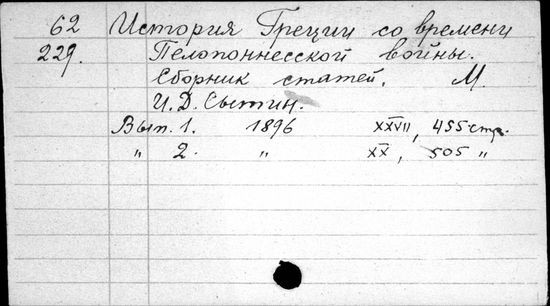 62 История Греции со времени
229. Пелопоннесской войны.
Сборник статей. М.
И.Д. Сытин.
Вып. 1. 1896 XXVII, 455 стр.
„ 2. „ XX, 505 „